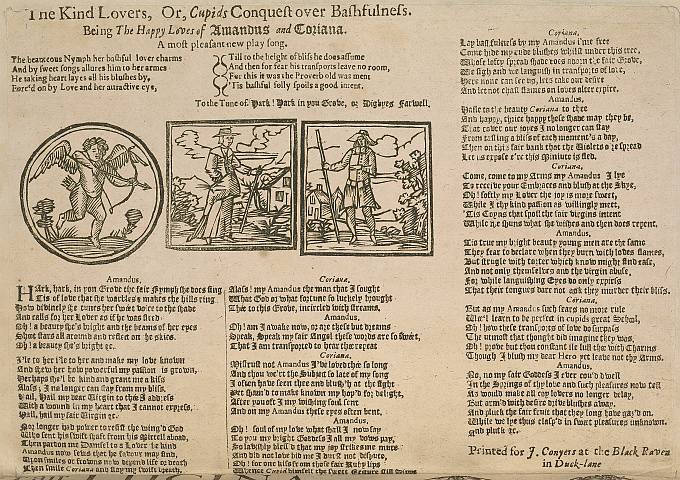 The Kind Lovers, Or, Cupids Conquest over Bashfulness.
Being The Happy Loves of Amandus and Coriana.
A most pleasant new play song.
The beauteous Nymph her bashful lover charms
And by sweet songs allures him to her armes
He taking heart layes all his blushes by,
Forc'd on by Love and her attractive eyes,
Till to the height of bliss he does assume
And then for fear his transports leave no room,
For this it was the Proverb old was ment
'Tis bashful folly spoils a good intent.
To the Tune of, Hark! Hark in yon Grove, or Digbyes Farwell,
Amandus,
HArk, hark, in yon Grove the fair Nymph she does sing
Tis of love that she warbles & makes the hills ring
How divinely she tunes her sweet voice to the shade
And calls for her Lover as if he was stred
Oh! a beauty she's bright and the beams of her eyes
Shoot stars all around and reflect on the skies.
Oh! a beauty she's bright &c.
I'le to her i'le to her and make my love known
And shew her how powerful my passion is grown,
Perhaps she'l be kind and grant me a kiss
Alass, I no longer can stay from my bliss.
Hail, Hail my dear Virgin to this address
With a wound in my heart that I cannot express,
Hail, hail my fair Virgin &c.
No; longer had power to resist the wing'd God
Who sent his swift shaft from his
Then pardon me Damsel to a Lover be kind
Amandus now sews that the favour may find,
Whose smiles or frowns now depend life or death
Then smile Coriana and stay my swift breath,
Coriana,
Alass! my Amandus the man that I sought
What God or what fortune so luckely brought
Thee to this Grove, incircled with streams,
Amandus,
Oh! am I awake now, or are these but dreams
Speak, Speak my fair Angel these words are so sweet,
That I am transported to hear thee repeat
Coriana,
Mistrust not Amandus I've loved thee so long
And thou we'rt the Subject so late of my song
I often have seen thee and blush'd at the sight
Yet sham'd to make known my hop'd for delight,
After you oft my wishing soul sent
And on my Amandus these eyes often bent,
Amandus,
Oh! soul of my love what shall I now say
To you my bright Goddess I all my vows pay,
So lavishly bless'd that my joy strikes me mute
And did not love bid me I durst not dispute,
Oh! for one kiss from those fair Ruby lips
Whence Cupid himself the sweet Nectare still
Coriana,
Lay bashfulness by my Amandus i'me free
Come hide my rude blushes whilst under this tree,
Whose lofty spread shade does adorn the fair Grove,
We sigh and we languish in transports of love,
Here none can see thy, lets take our desire
And let not chast flames on loves alter expire.
Amandus,
Haste to the beauty Coriana to thee
And happy, thrice happy these shade may they be,
That cover our joyes I no longer can stay
From tasting a bliss of each moment's a day,
Then on this fair bank that the Violets o're spread
Let us expose e're this Minute is fled.
Coriana,
Come, come to my Arms my Amandus I lye
To receive your Embraces and blush at the Skye,
Oh! softly my Lover the joy is more sweet,
While I thy kind passion as willingly meet,
'Tis Coyness that spoils the fair virgins intent
While she shuns what she wishes and then does repent.
Amandus,
Tis true my bright beauty young men are the same
They fear to declare when they burn with loves flames,
But strugle with torter which know might find ease,
And not only themselves and the virgin abuse,
For while languishing Eyes do only express
That their tongues dare not ask they murder their bliss.
Coriana,
But as my Amandus such fears no more rule
We'l learn to be perfect in cupids great School,
Oh! how these transports of love do surpass
The utmost that thought did imagine they was,
Oh! prove but thou constant ile lull thee with Charms
Though I blush my dear Hero yet leave not thy Arms.
Amandus,
No, no my fair Goddess I ever cou'd dwell
In the Springs of thy love and such pleasures now tell
As would make all coy lovers no longer delay,
But arm'd with desire drive blushes away,
And pluck the fair fruit that they long have gaz'd on.
While we lye thus clasp'd in sweet pleasures unknown.
And pluck &c.
Printed for J. Conyers at the Black Raven
in Duck-lane